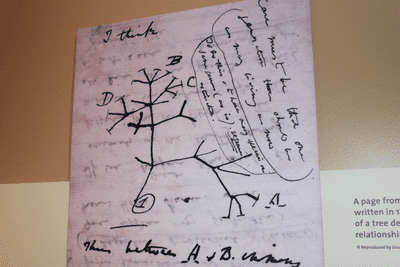 I think
Case must be that one
generation then should be
as many living as now
To do this & to have many species in
same genus (as is) requires
extinction
B
C
D
A
1
Thus between A & B. immens
A page from
written in 1
of a tree de
relationship